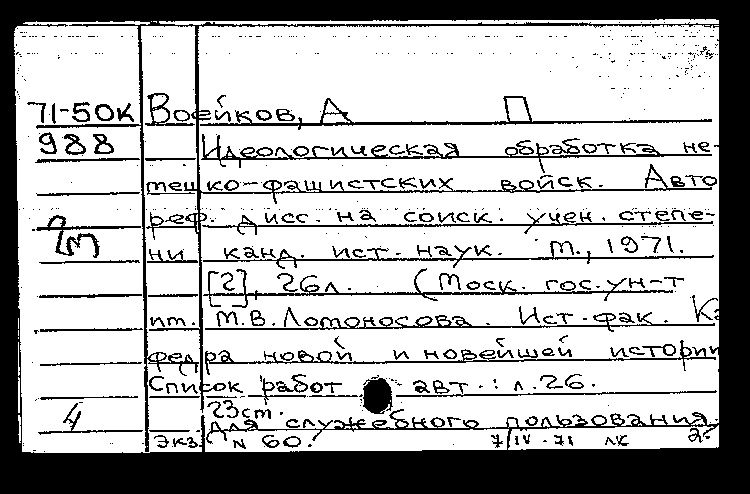 71-50К Воейков, А П
988 Идеологическая обработка не-
мецко-фашистских войск. Авто
реф. дисс. на соиск. учен. степе-
ни канд. ист. наук. М., 1971.
[2], 26л. (Моск. гос. ун-т
им. М.В. Ломоносова. Ист. фак. Ка
федра новой и новейшей истории
Список работ авт.: л. 26.
23ст.
4 Для служебного пользования.
Экз. N 60. 7/IV-71 лк